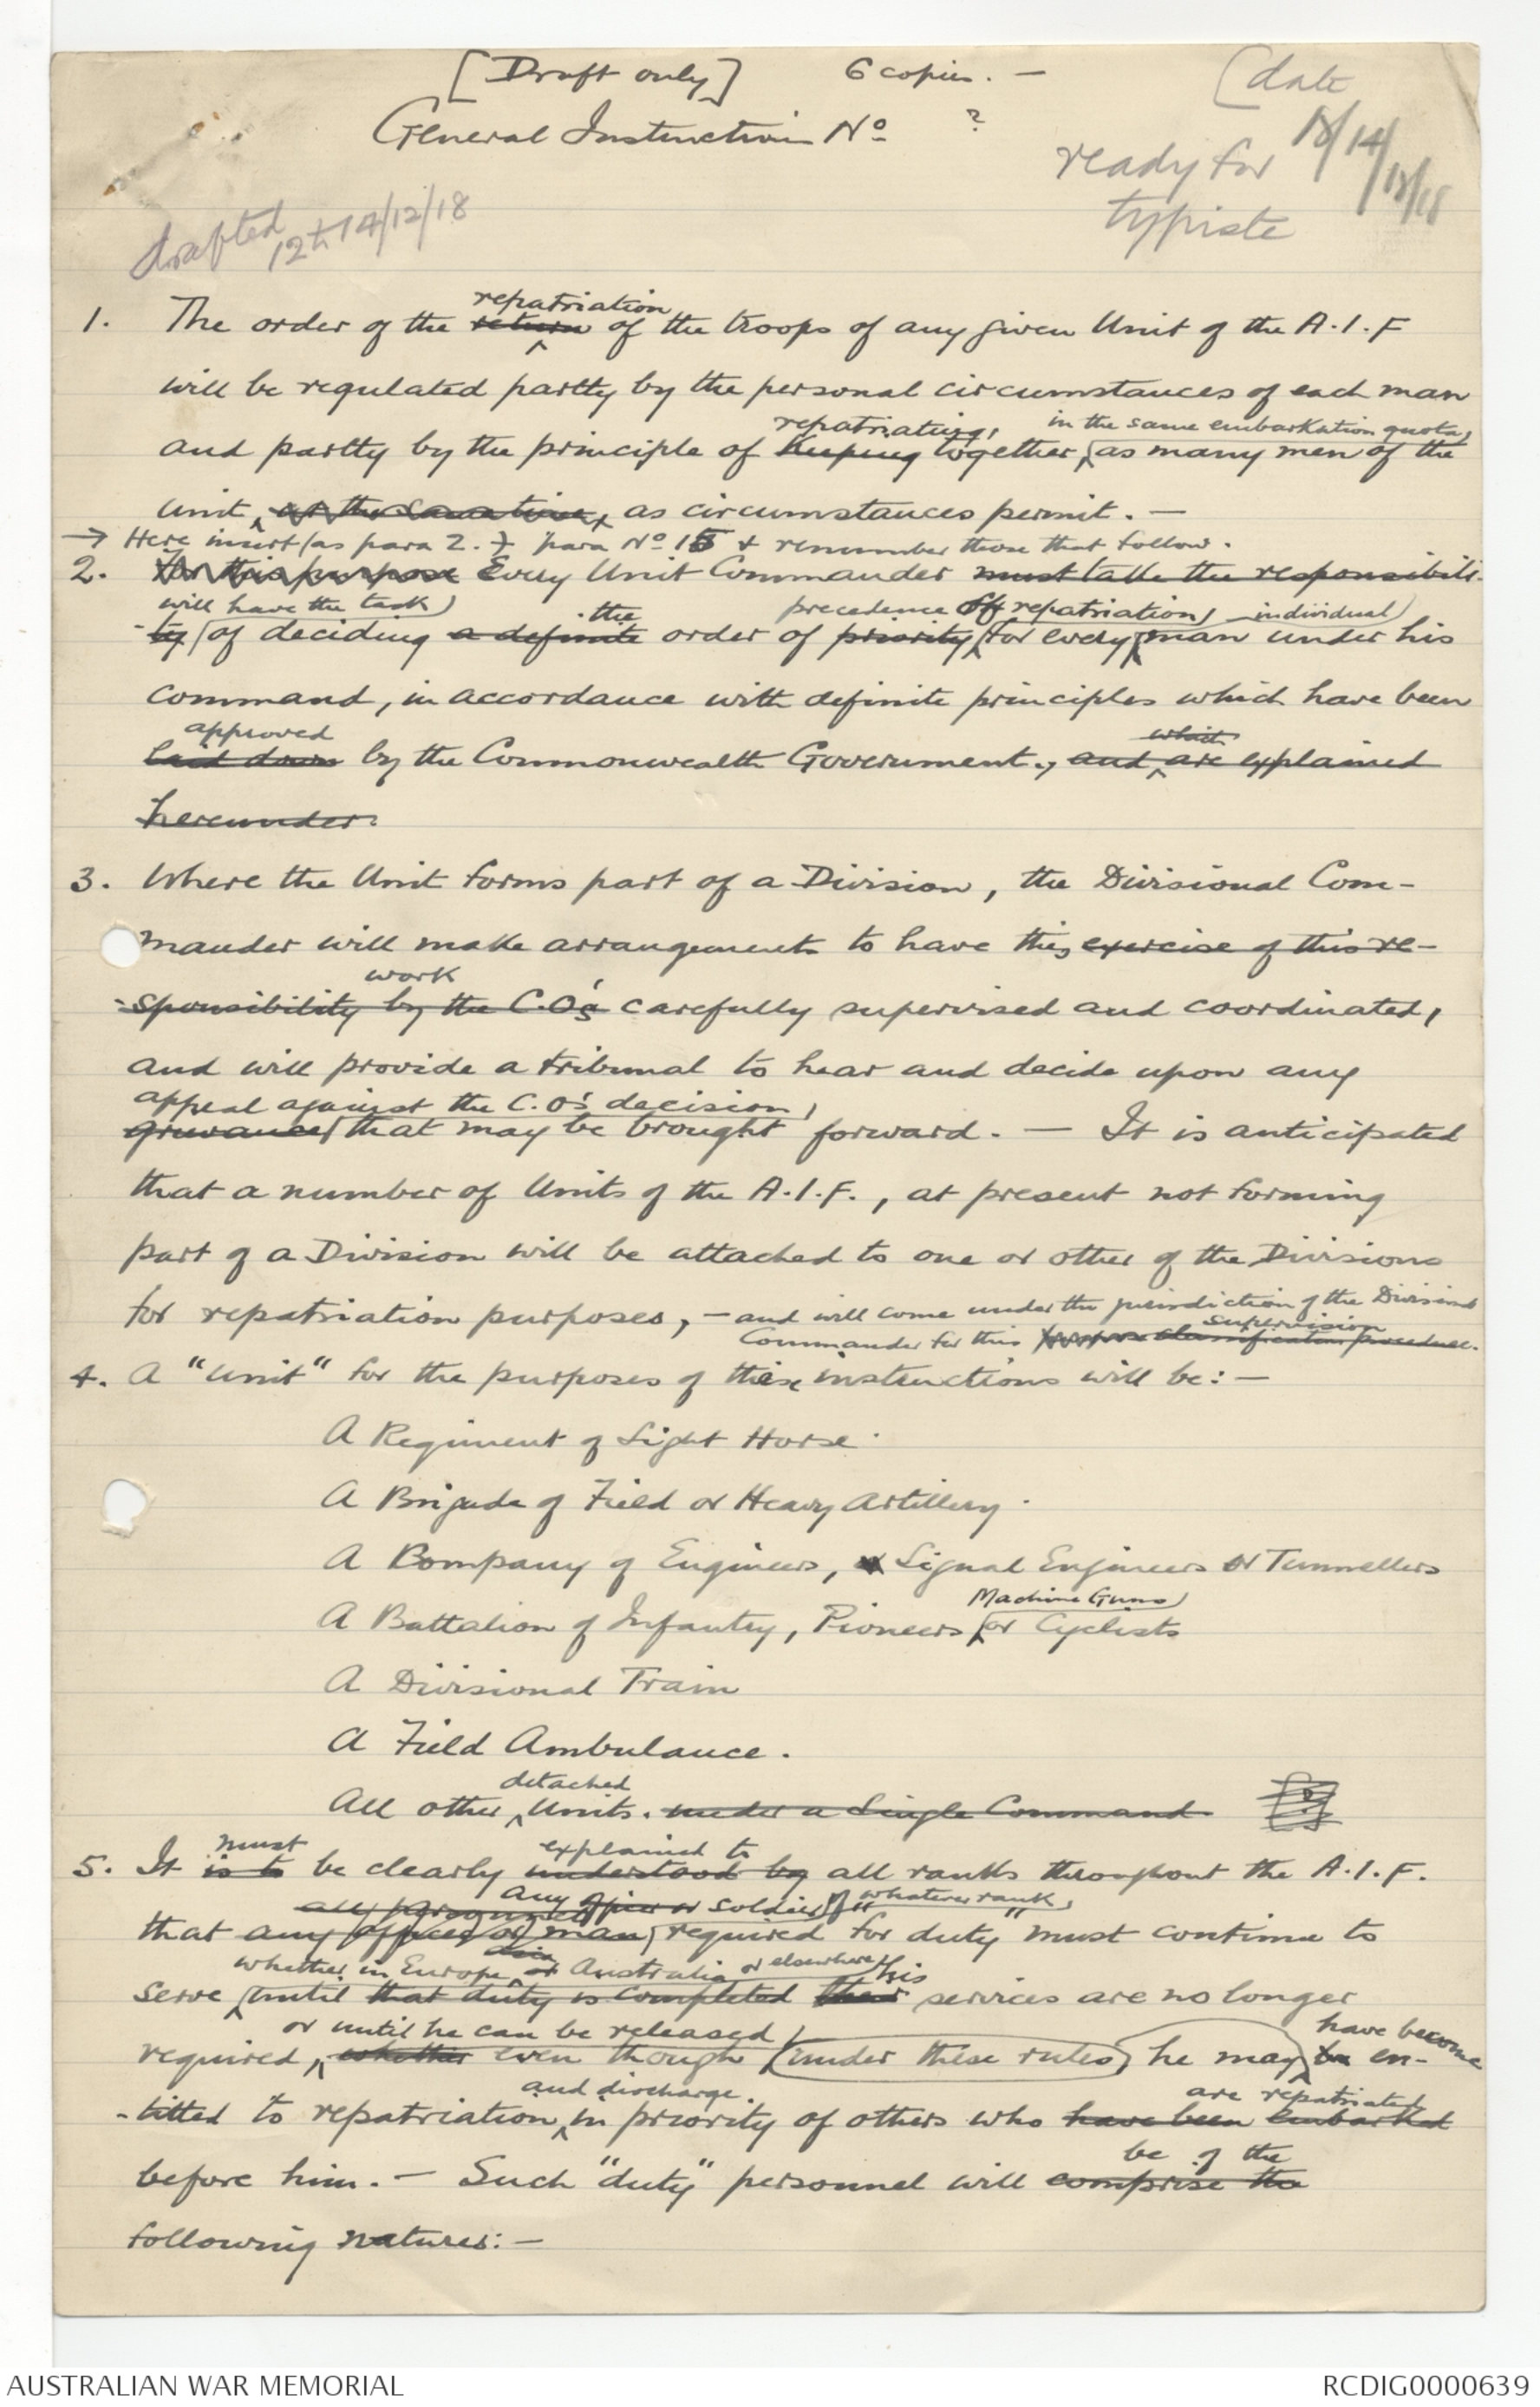 [Draft only] 6 copies. —
[date
General Instruction No ?
ready for 18/14/12/18
typiste
drafted 12th 14/12/18
1. The order of the return repatriation of the troops of any given Unit of the A.I.F
will be regulated partly by the personal circumstances of each man
and partly by the principle of keeping repatriating, together, in the same embarkation quota, as many men of the
Unit, at the same time, as circumstances permit. —
→ Here insert (as para 2.) para No 15 & renumber those that follow.
2. For this purpose Every Unit Commander must take the responsibili-
-ty will have the task of deciding a definite the order of priority precedence of repatriation for every individual man under his
command, in accordance with definite principles which have been
laid down approved by the Commonwealth Government., and which are explained
hereunder.
3. Where the Unit forms part of a Division, the Divisional Com-
mander will make arrangements to have this exercise of this re-
-sponsibility by the C.O's work carefully supervised and coordinated,
and will provide a tribunal to hear and decide upon any
grievances appeal against the C.O's decision, that may be brought forward. — It is anticipated
that a number of Units of the A.I.F., at present not forming
part of a Division will be attached to one or other of the Divisions
for repatriation purposes, — and will come under the jurisdiction of the Divisional
Commander for this purpose classification procedure. supervision
4. A "Unit" for the purposes of these instructions will be: —
A Regiment of Light Horse.
A Brigade of Field or Heavy Artillery.
A Company of Engineers, Signal Engineers or Tunnellers
A Battalion of Infantry, Pioneers Machine Guns or Cyclists
A Divisional Train
A Field Ambulance.
All other detached Units. under a Single Command
5. It is to must be clearly understood by explained to all ranks throughout the A.I.F.
that any officer or man any officer or soldier of whatever rank, required for duty must continue to
serve whether in Europe or Australia or elsewhere, until that duty is completed their his services are no longer
required, or until he can be released whether even though (under these rules) he may be have become en-
-titled to repatriation and discharge. in priority of others who have been embarked are repatriated
before him. — Such "duty" personnel will comprise the be of the
following natures: —
AUSTRALIAN WAR MEMORIAL
RCDIG0000639